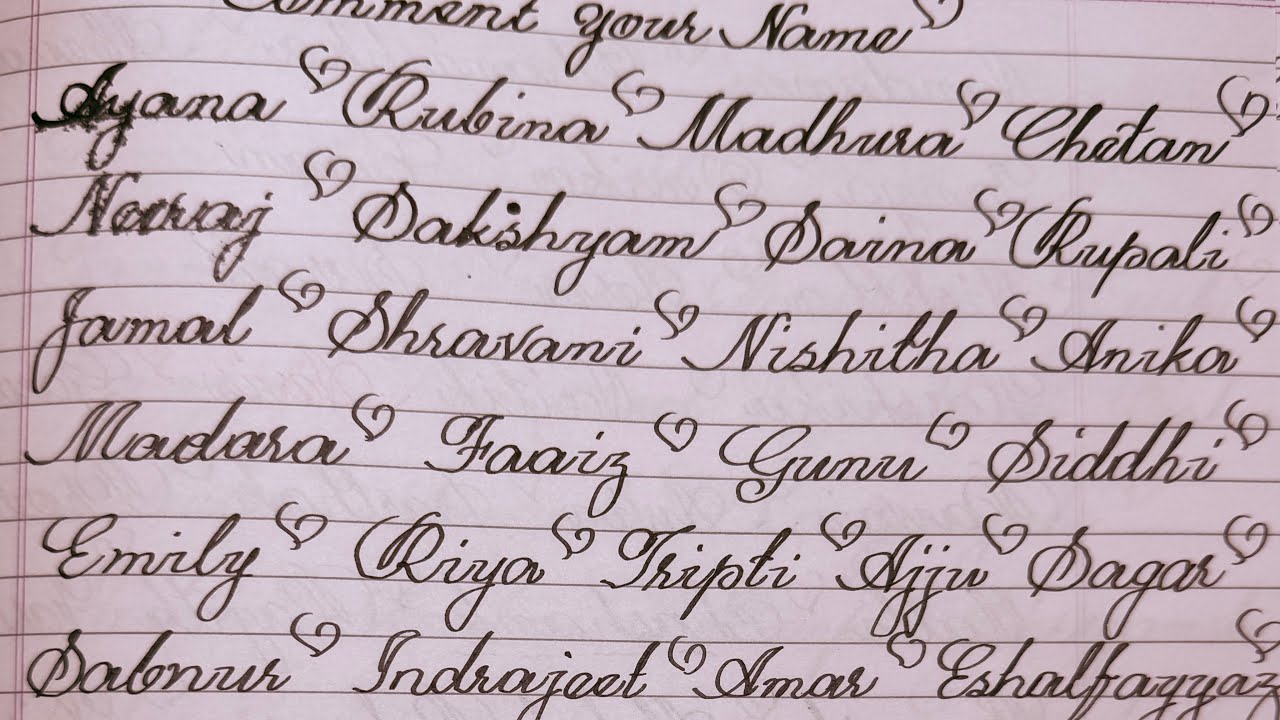 Comment Your Name
Ayana Rubina Madhura Chetan
Sakshyam Saina Rupali
Jamal Shravani Nishitha Anika
Madara Faaiz Gunu Siddhi
Emily Riya Tripti Ajju Sagar
Sabnur Indrajeet Amar Eshalfayyaz